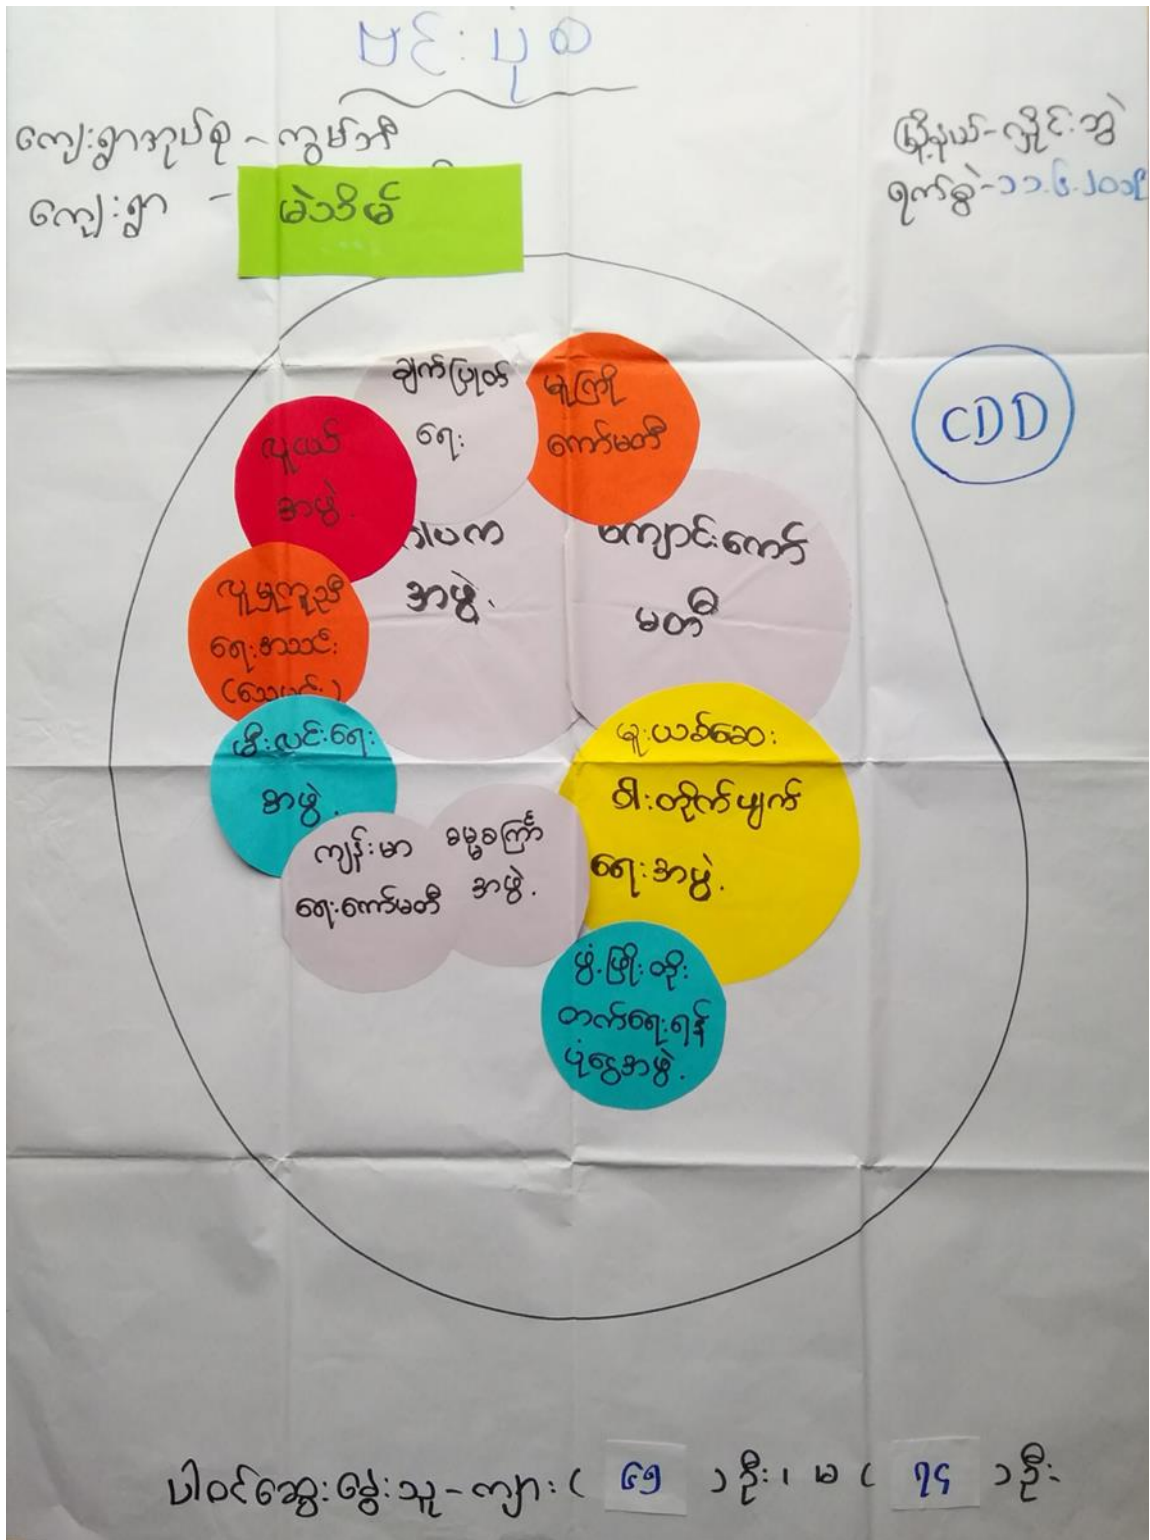 ဗင်းပုံစ
ကျေးရွာအုပ်စု - ကွမ်ဘီ
မြို့နယ်-လှိုင်းဘွဲ
ကျေးရွာ - မဲသိမ်
ရက်စွဲ-၁၁.၆.၂၀၁၉
CDD
ချက်ပြုတ်
ရေး
မူကြို
ကော်မတီ
လူငယ်
အဖွဲ့
အဖွဲ့
မကျောင်းကော်
မတီ
လူမှုကူညီ
ရေးအသင်း
မီးလင်းရေး
အဖွဲ့
မူးယစ်ဆေး
ဝါးတိုက်ဖျက်
ရေးအဖွဲ့
ကျန်းမာ
ရေးကော်မတီ
ဓမ္မစကြာ
အဖွဲ့
ဖွံ့ဖြိုးတိုး
တက်ရေးရန်
ပုံငွေအဖွဲ့
ပါဝင်ဆွေးနွေးသူ-ကျား ( ၆၅ ) ဦး၊ မ ( ၇၄ ) ဦး